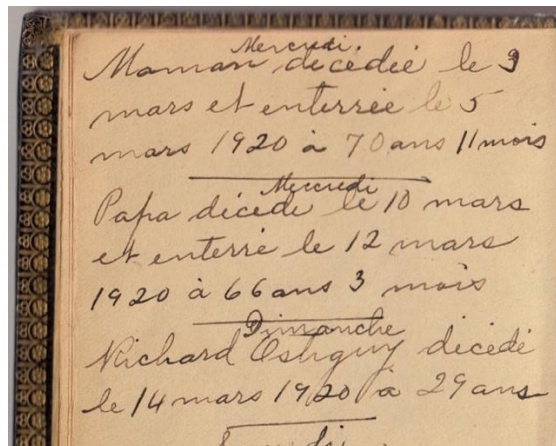 Mercredi
Maman décédée le 3
mars et enterrée le 5
mars 1920 à 70 ans 11 mois
Mercredi
Papa décédé le 10 mars
et enterré le 12 mars
1920 à 66 ans 3 mois
Dimanche
Richard Ostiguy décédé
le 14 mars 1920 à 29 ans